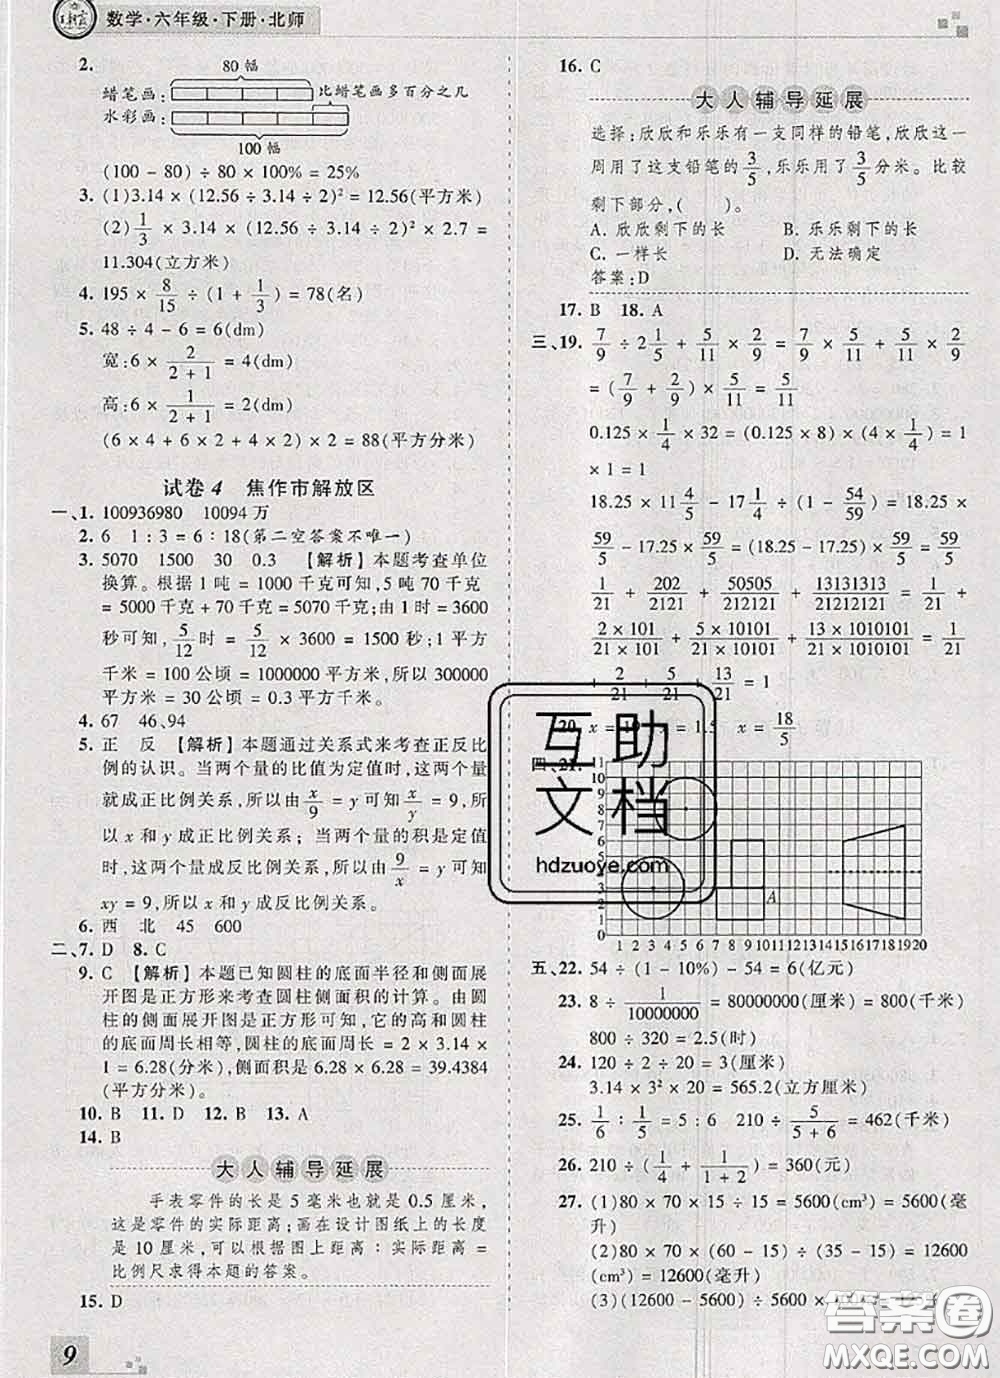 数学·六年级·下册·北师
2.
80 幅
蜡笔画:
比蜡笔画多百分之几
水彩画:
100 幅
(100 - 80) ÷ 80 × 100% = 25%
3. (1)3.14 × (12.56 ÷ 3.14 ÷ 2)² = 12.56(平方米)
(2) 1/3 × 3.14 × (12.56 ÷ 3.14 ÷ 2)² × 2.7 =
11.304(立方米)
4. 195 × 8/15 ÷ (1 + 1/3) = 78(名)
5. 48 ÷ 4 - 6 = 6(dm)
宽:6 × 2/(2 + 1) = 4(dm)
高:6 × 1/(2 + 1) = 2(dm)
(6 × 4 + 6 × 2 + 4 × 2) × 2 = 88(平方分米)
试卷 4 焦作市解放区
一、1. 100936980 10094 万
2. 6 1 : 3 = 6 : 18(第二空答案不唯一)
3. 5070 1500 30 0.3 【解析】本题考查单位
换算。根据 1 吨 = 1000 千克可知,5 吨 70 千克
= 5000 千克 + 70 千克 = 5070 千克;由 1 时 = 3600
秒可知, 5/12 时 = 5/12 × 3600 = 1500 秒;1 平方
千米 = 100 公顷 = 1000000 平方米,所以 300000
平方米 = 30 公顷 = 0.3 平方千米。
4. 67 46、94
5. 正 反 【解析】本题通过关系式来考查正反比
例的认识。当两个量的比值为定值时,这两个量
就成正比例关系,所以由 x/9 = y 可知 x/y = 9,所
以 x 和 y 成正比例关系;当两个量的积是定值
时,这两个量成反比例关系,所以由 9/x = y 可知
xy = 9,所以 x 和 y 成反比例关系。
6. 西 北 45 600
二、7. D 8. C
9. C 【解析】本题已知圆柱的底面半径和侧面展
开图是正方形来考查圆柱侧面积的计算。由圆
柱的侧面展开图是正方形可知,它的高和圆柱
的底面周长相等,圆柱的底面周长 = 2 × 3.14 ×
1 = 6.28(分米),侧面积是 6.28 × 6.28 = 39.4384
(平方分米)。
10. B 11. D 12. B 13. A
14. B
大人辅导延展
手表零件的长是 5 毫米也就是 0.5 厘米,
这是零件的实际距离;画在设计图纸上的长度
是 10 厘米,可以根据图上距离:实际距离 =
比例尺求得本题的答案。
15. D
9
16. C
大人辅导延展
选择:欣欣和乐乐有一支同样的铅笔,欣欣这一
周用了这支铅笔的 3/5,乐乐用了 3/5 分米。比较
剩下部分,( )。
A. 欣欣剩下的长 B. 乐乐剩下的长
C. 一样长 D. 无法确定
答案:D
17. B 18. A
三、19. 7/9 ÷ 2 1/5 + 5/11 × 2/9 = 7/9 × 5/11 + 5/11 × 2/9
= (7/9 + 2/9) × 5/11 = 5/11
0.125 × 1/4 × 32 = (0.125 × 8) × (4 × 1/4) = 1
× 1 = 1
18.25 × 11 4/5 - 17 1/4 ÷ (1 - 54/59) = 18.25 ×
59/5 - 17.25 × 59/5 = (18.25 - 17.25) × 59/5 = 59/5
1/21 + 202/2121 + 50505/212121 + 13131313/21212121 = 1/21 +
2 × 101/21 × 101 + 5 × 10101/21 × 10101 + 13 × 1010101/21 × 1010101 = 1/21
+ 2/21 + 5/21 + 13/21 = 1
20. x = 10 x = 1.5 x = 18/5
四、21.
11
10
9
8
7
6
5
4
3
2
1
0
A
1 2 3 4 5 6 7 8 9 10 11 12 13 14 15 16 17 18 19 20
五、22. 54 ÷ (1 - 10%) - 54 = 6(亿元)
23. 8 ÷ 1/10000000 = 80000000(厘米) = 800(千米)
800 ÷ 320 = 2.5(时)
24. 120 ÷ 2 ÷ 20 = 3(厘米)
3.14 × 3² × 20 = 565.2(立方厘米)
25. 1/6 : 1/5 = 5 : 6 210 ÷ 5/(5 + 6) = 462(千米)
26. 210 ÷ (1/4 + 1/(1 + 2)) = 360(元)
27. (1)80 × 70 × 15 ÷ 15 = 5600(cm³) = 5600(毫
升)
(2)80 × 70 × (60 - 15) ÷ (35 - 15) = 12600
(cm³) = 12600(毫升)
(3)(12600 - 5600) ÷
互助
文档
hdzuoye.com
答案圈
MXQE.COM